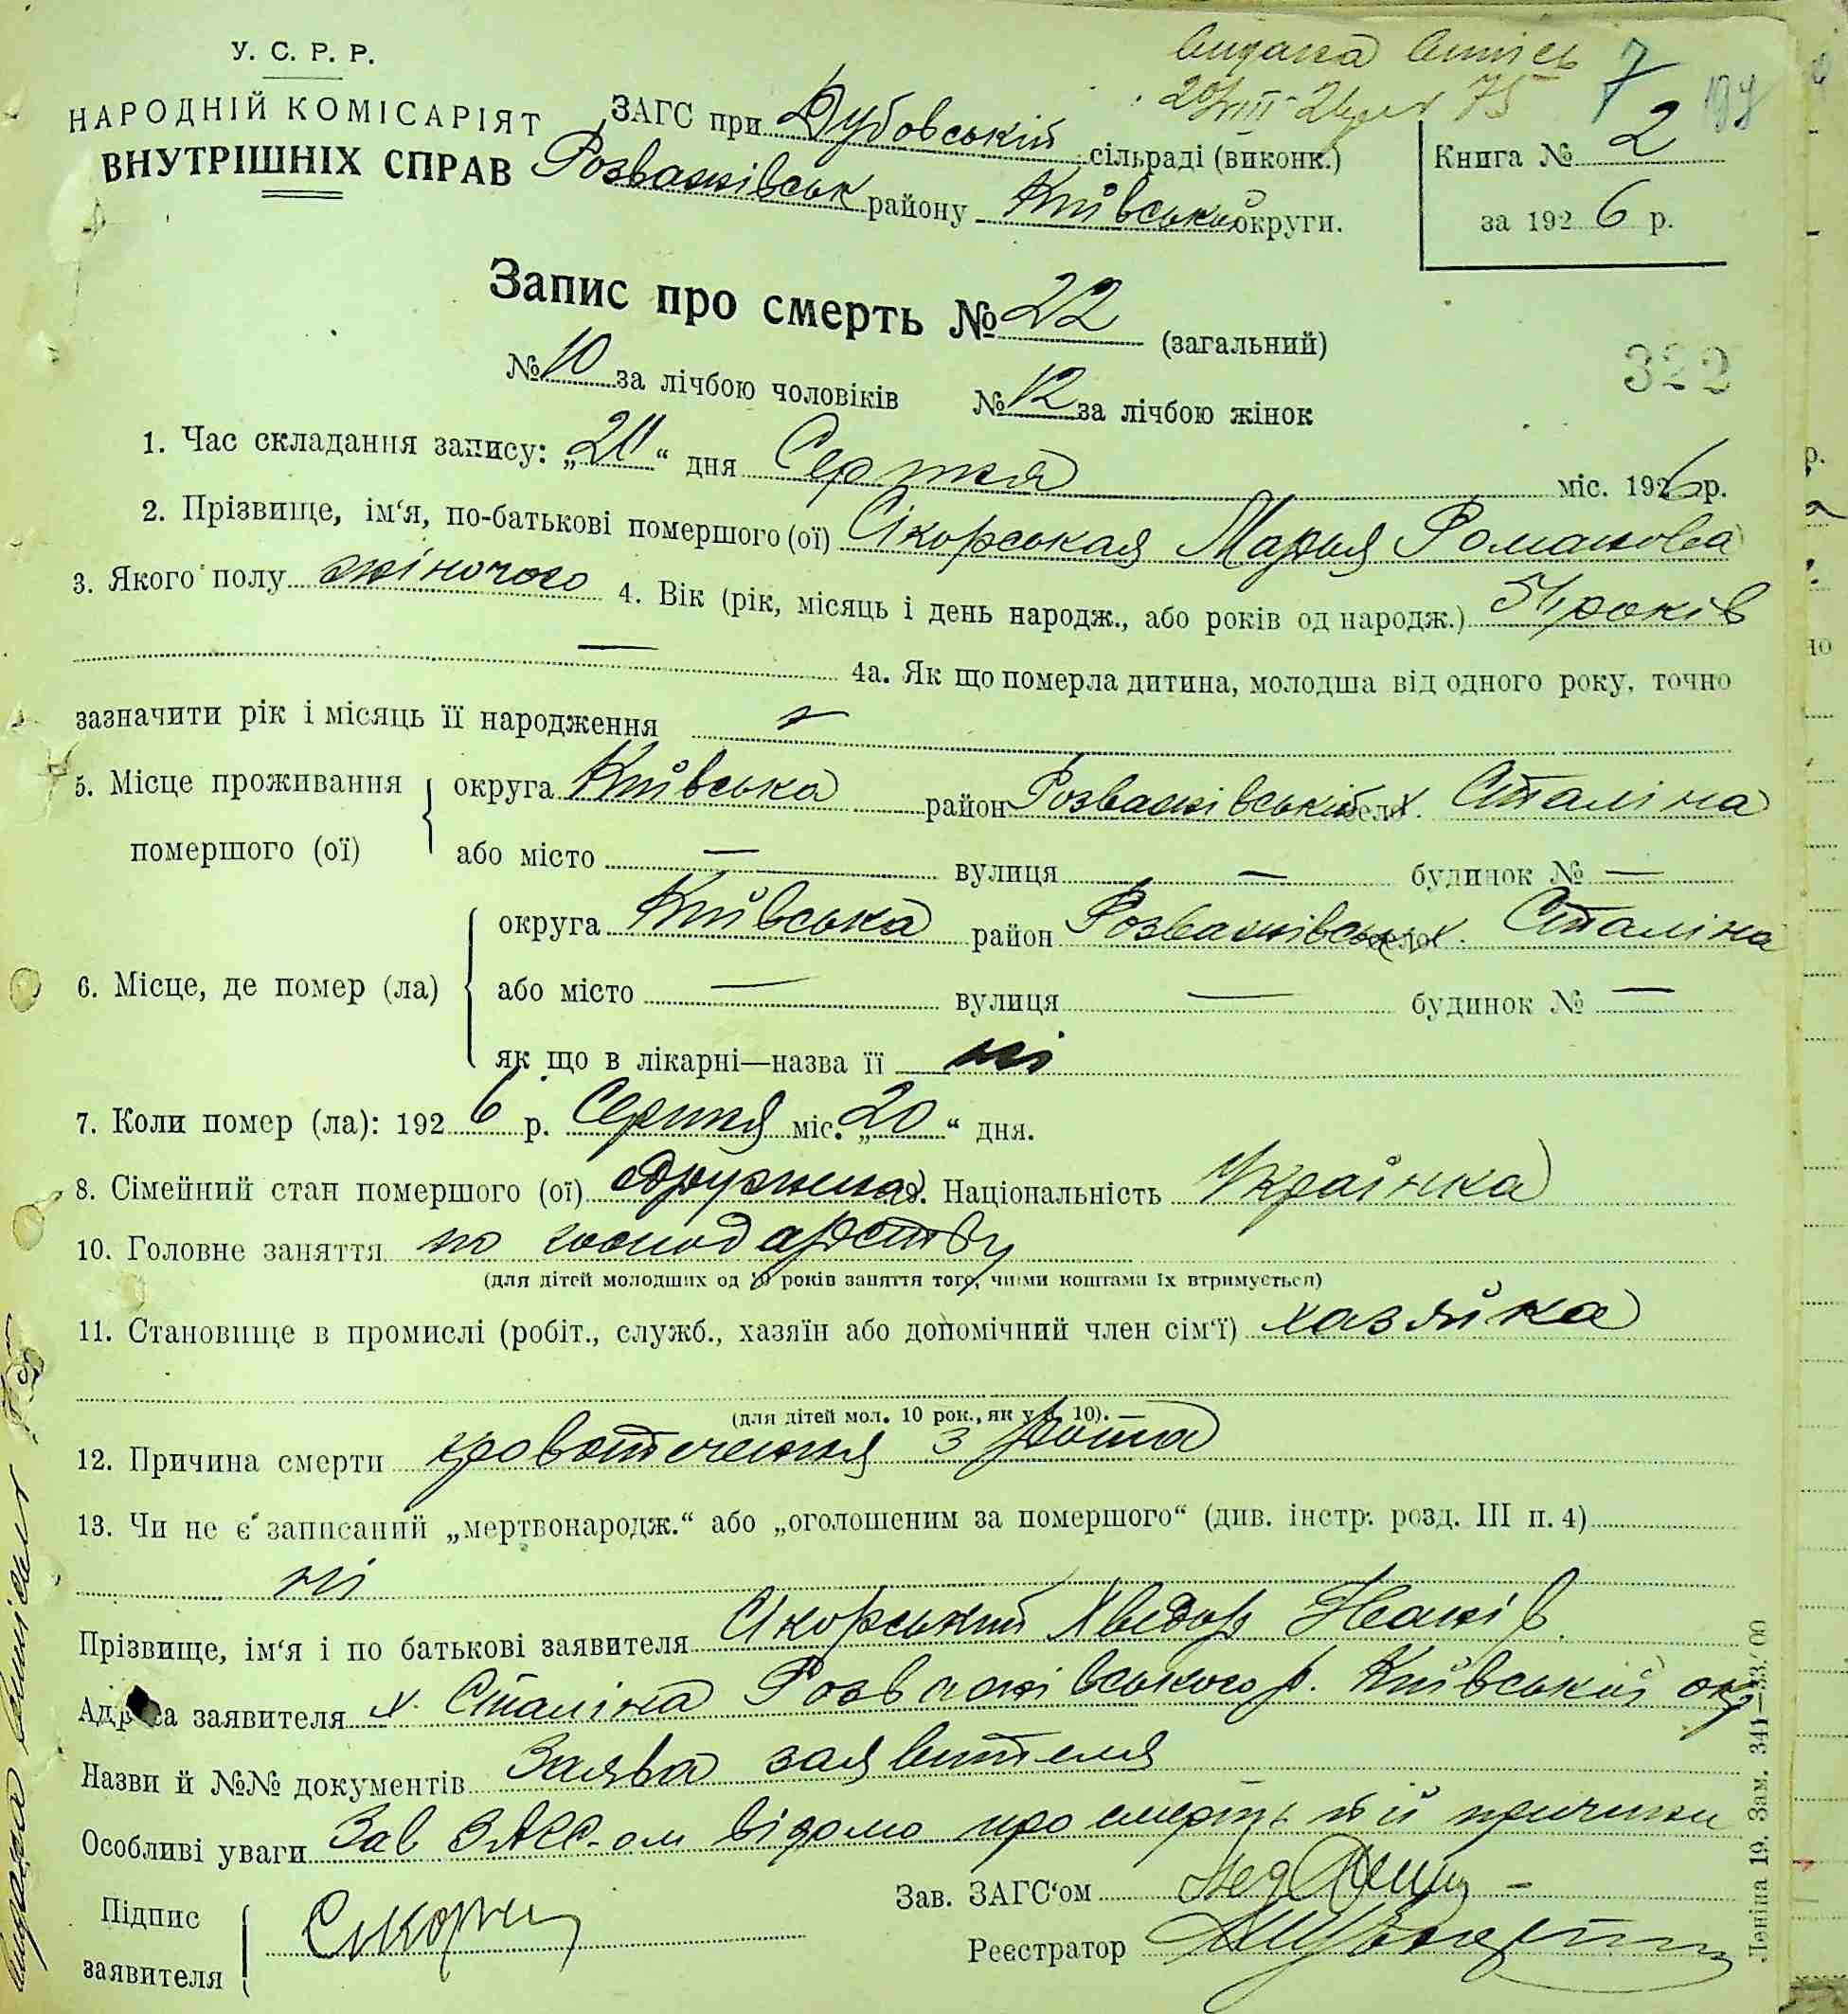 Видана витпісь
7
У. С. Р. Р.
НАРОДНІЙ КОМІСАРІЯТ
ВНУТРІШНІХ СПРАВ
ЗАГС при Дубовській сільраді (виконк.)
Розважівськ району Київської округи.
Книга № 2
за 1926 р.
Запис про смерть № 22 (загальний)
322
№ 10 за лічбою чоловіків № 12 за лічбою жінок
1. Час складання запису: „21“ дня Серпня міс. 1926 р.
2. Прізвище, ім‘я, по-батькові помершого (ої) Сікорськая Марья Романова
3. Якого полу жіночого 4. Вік (рік, місяць і день народж., або років од народж.) 54 років
— 4а. Як що померла дитина, молодша від одного року, точно
зазначити рік і місяць її народження —
5. Місце проживання помершого (ої) округа Київська район Розважівський село х. Сталіна
або місто — вулиця — будинок № —
6. Місце, де помер (ла) округа Київська район Розважівськ село х. Сталіна
або місто — вулиця — будинок № —
як що в лікарні—назва її ні
7. Коли помер (ла): 1926 р. Серпня міс. „20“ дня.
8. Сімейний стан помершого (ої) дружена 9. Національність Українка
10. Головне заняття по господарству
(для дітей молодших од 10 років заняття того, чиїми коштами їх втримується)
11. Становище в промислі (робіт., служб., хазяїн або допомічний член сім‘ї) хазяйка
(для дітей мол. 10 рок., як у п. 10). —
12. Причина смерти кровотечення з рота
13. Чи не є записаний „мертвонародж.“ або „оголошеним за помершого“ (див. інстр. розд. III п. 4)
ні
Прізвище, ім‘я і по батькові заявителя Сікорський Хведор Іванів.
Адреса заявителя х. Сталіна Розважівського р. Київської окр
Назви й №№ документів Заява заявителя
Особливі уваги Зав ЗАГС-ом відомо про смерть її й причини
Підпис заявителя
Зав. ЗАГС‘ом
Реєстратор
Леніна 19. Зам. 341—33.